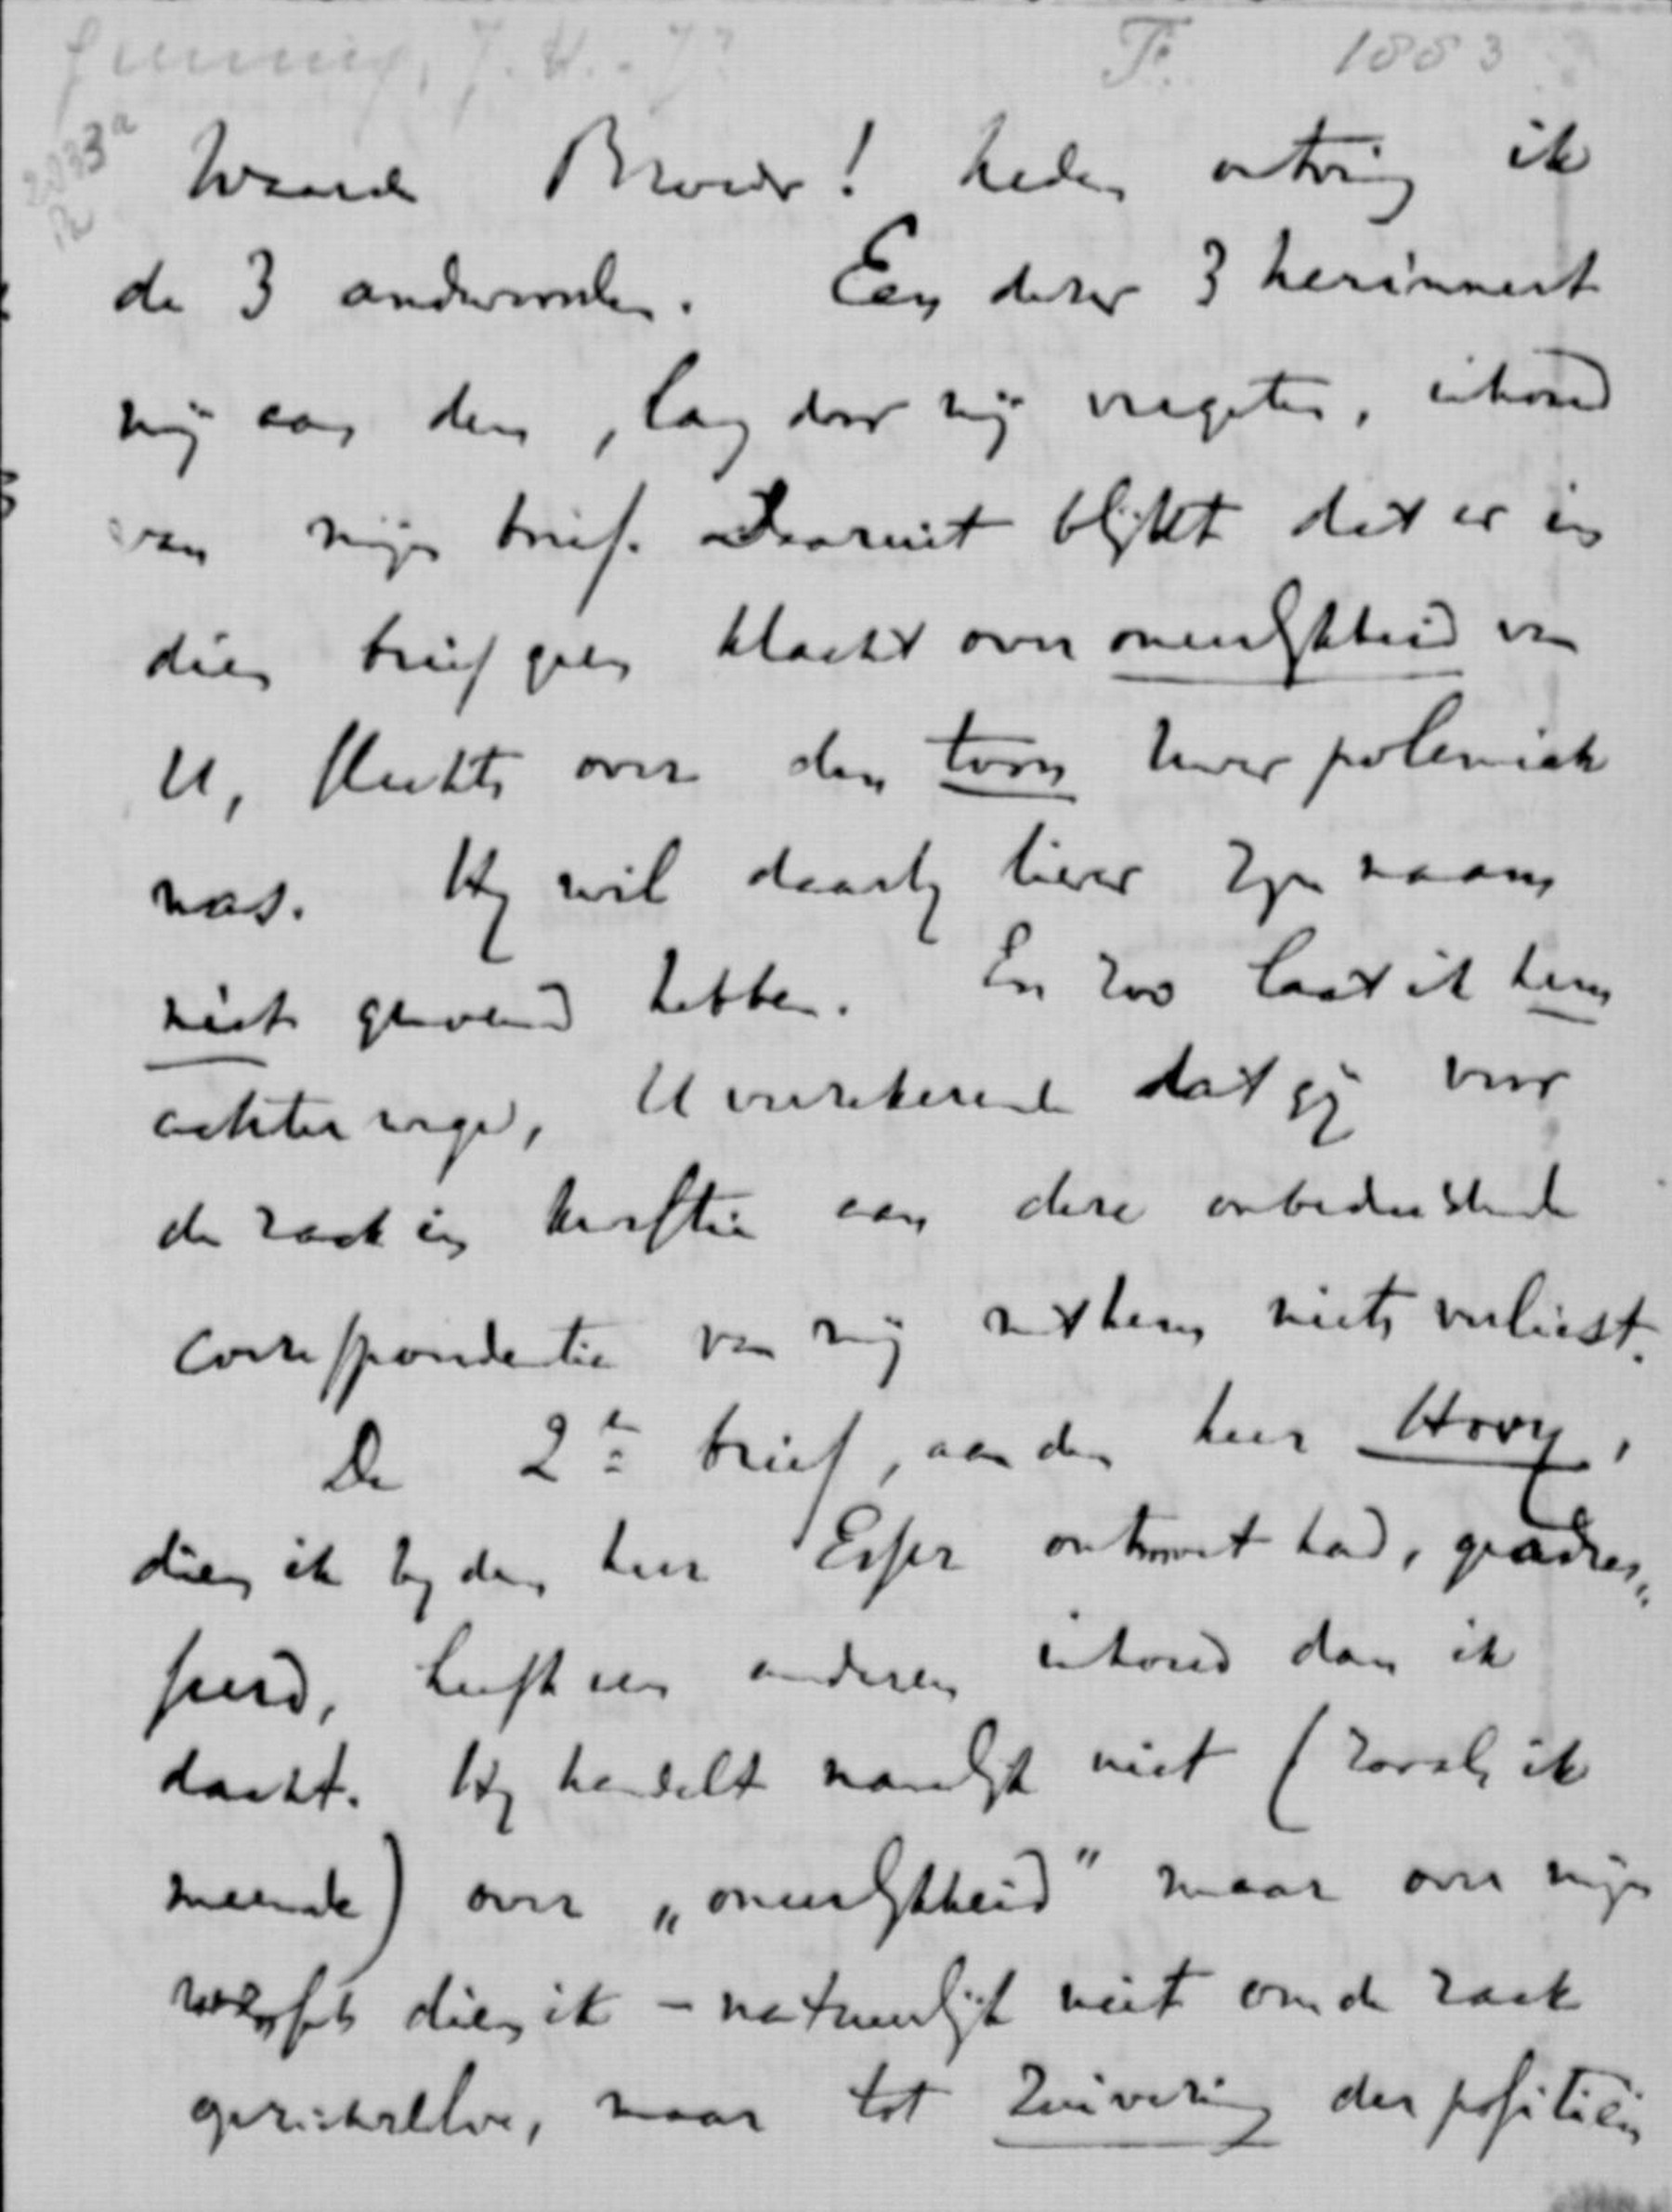 Gunning, J. H. - Jr
F. 1883
2933a
Waarde Broeder! heden ontving ik
de 3 antwoorden. Een dezer 3 herinnert
mij aan den, lang door mij vergeten, inhoud
van mijn brief. Daaruit blijkt dat er in
dien brief geen klacht over oneerlijkheid van
U, slechts over den toon Uwer polemiek
was. Hij wil daarbij liever zijn naam
niet genoemd hebben. En zoo laat ik hem
achterwege, U verzekerende dat gij voor
de zaak in kwestie aan deze onbeduidende
correspondentie van mij met hem niets verliest.
De 2e brief, aan den heer Hovy,
dien ik bij den heer Esser ontmoet had, geadres„
seerd, heeft een anderen inhoud dan ik
dacht. Hij handelt namelijk niet (zooals ik
meende) over „oneerlijkheid" maar over mijn
dien ik – natuurlijk niet om de zaak
maar tot zuivering der positiën